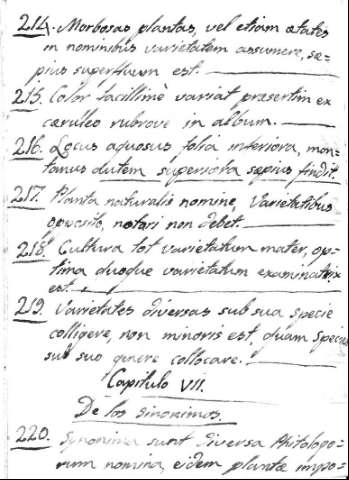 214. Morbosas plantas, vel etiam ætates
in nominibus varietatem assumere, sæ=
pius superfluum est.
215. Color facillimè variat præsertim ex
cæruleo rubrove in album.
216. Locus aquosus folia inferiora, mon=
tanus autem superiora sæpius findit.
217. Planta naturalis nomine, Varietatibus
oposito, notari non debet.
218. Cultura tot varietatum mater, op=
tima quoque varietatum examinatrix
est.
219. Varietates diversas sub sua specie
colligere, non minoris est, quam species
sub suo genere collocare.
Capitulo VII.
De los sinonimos.
220. Synonima sunt diversa Phitologo=
rum nomina, eidem plantæ impo=